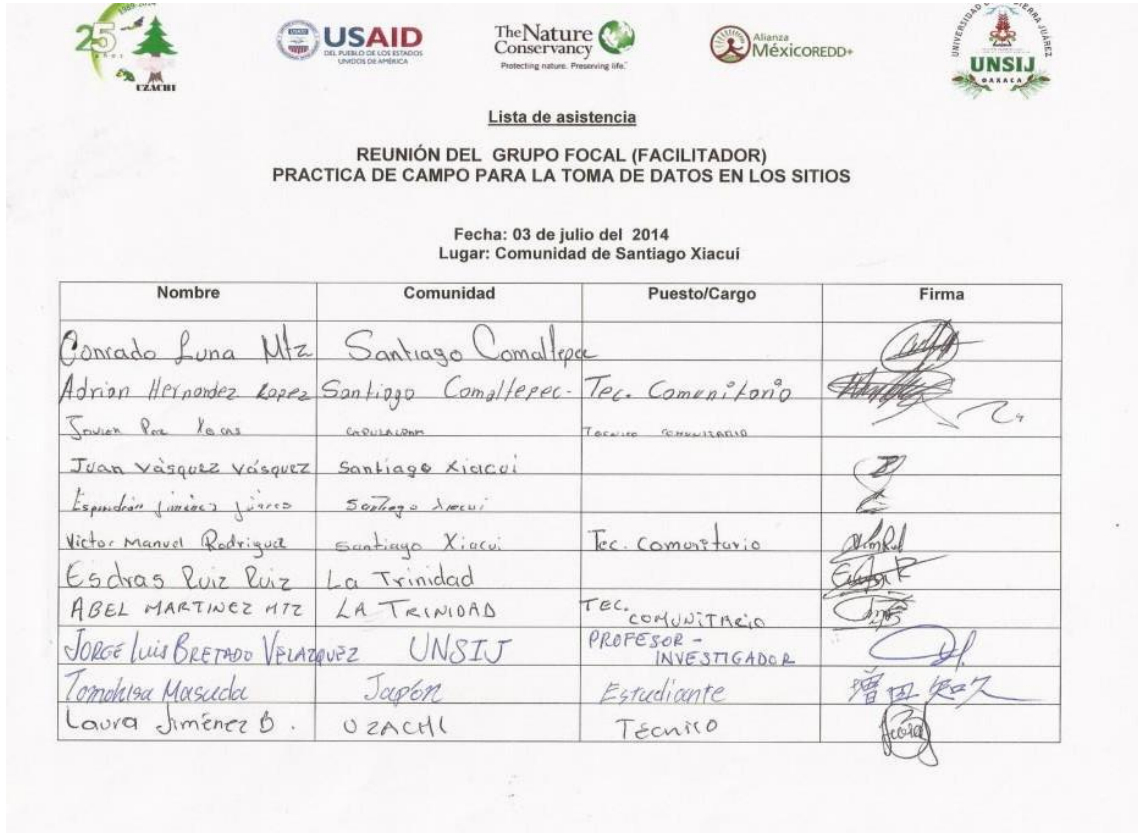 1989-2014
25
años
UZACHI
USAID
DEL PUEBLO DE LOS ESTADOS
UNIDOS DE AMÉRICA
The Nature
Conservancy
Protecting nature. Preserving life.
Alianza
MéxicoREDD+
UNIVERSIDAD SIERRA JUÁREZ
UNSIJ
OAXACA
Lista de asistencia
REUNIÓN DEL GRUPO FOCAL (FACILITADOR)
PRACTICA DE CAMPO PARA LA TOMA DE DATOS EN LOS SITIOS
Fecha: 03 de julio del 2014
Lugar: Comunidad de Santiago Xiacuí
Nombre Comunidad Puesto/Cargo Firma
Conrado Luna Mtz Santiago Comaltepec
Adrian Hernandez Lopez Santiago Comaltepec- Tec. Comunitario
Tecnico Comunitario
Juan Vásquez Vásquez Santiago Xiacui
Jiménez Juárez Santiago Xiacui
Victor Manuel Rodriguez Santiago Xiacui Tec. Comunitario
Esdras Ruiz Ruiz La Trinidad
ABEL MARTINEZ MTZ LA TRINIDAD TEC. COMUNITARIO
JORGE Luis BRETADO VELAZQUEZ UNSIJ PROFESOR - INVESTIGADOR
Tomohisa Masuda Japón Estudiante 増田知久
Laura Jiménez B. UZACHI Técnico